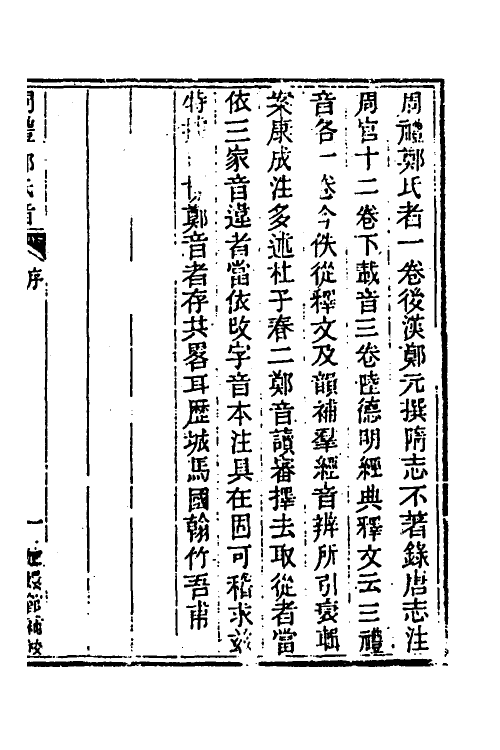 周禮鄭氏音一卷後漢鄭元撰隋志不著錄唐志注
周官十二卷下載音三卷陸德明經典釋文云三禮
音各一卷今佚從釋文及韻補羣經音辨所引裒輯
案康成注多述杜子春二鄭音讀審擇去取從者當
依三家音違者當依改字音本注具在固可稽求茲
特 鄭音者存其畧耳歷城馬國翰竹吾甫
周禮鄭氏音 序
一 補校